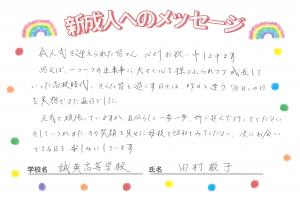 新成人へのメッセージ
成人式を迎えられた皆さん、心よりお祝い申し上げます
思えば、一つ一つの出来事に大きく心を揺さぶられつつ成長して
いった高校時代。そんな皆と過ごす日々は、昨日と違う「今日」の日
を実感できた毎日でした。
元気で頑張っていますか。自分らしく一歩一歩、前に進んで行ってください
そしていつかまた、その笑顔を見せに母校を訪ねてみてください。次にお会い
できる日を楽しみにしています
学校名 誠英高等学校 氏名 田村敬子